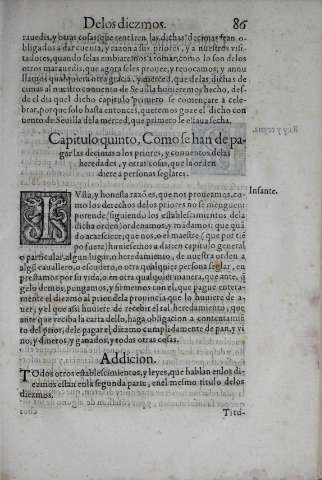 De los diezmos. 86
rauedis, y otras cosas que tenien, las dichas decimas sean o-
bligados a dar cuenta, y razon a sus priores, y a nuestros visi-
tadores, quando se las embiaremos a tomar, como lo son de los
otros marauedis, que agora se les prouee, y reuocamos, y annu
llamos qualquiera gracia, y merced, que de las dichas de
cimas al nuestro conuento de Seuilla huuieremos hecho, des-
de el dia que el dicho capitulo primero se començare a cele-
brar, porque solo hasta entonces, queremos goze el dicho con
uento de Seuilla de la merced, que primero se estaua fecha.
Capitulo quinto, Como se han de pa-
gar las decimas a los priores, y conuentos de las
heredades, y otras cosas, que la orden
diere a personas seglares.
IVsta, y honesta razõ es, que nos proueamos, co-
mo los derechos de los priores no se menguen:
porende (siguiendo los establescimientos de la
dicha orden) ordenamos, y mãdamos: que quã
do acaesciere, que nos, o el maestre (que por tiẽ
po fuere) huuiesemos a dar en capitulo general
o particular, algun lugar, o heredamiento, de nuestra orden a
algũ cauallero, o escudero, o otra qualquier persona seglar, en
prestamos por su vida, o en otra qualquier manera, que ante, q̃
gelo demos, pongamos, y firmemos con el, que pague entera-
mente el diezmo al prior de la prouincia que lo huuiere de a-
uer, y el que assi huuiere de rescebir el tal heredamiento, que
ante que resciba la carta dello, haga obligacion a contentamiẽ
to del prior, de le pagar el diezmo cumplidamente de pan, y vi
no, y dineros, y ganados, y todas otras cosas.
Infante.
Addicion.
TOdos otros establescimientos, y leyes, que hablan en los di-
ezmos estan en la segunda parte, en el mismo titulo de los
diezmos.
Titu-